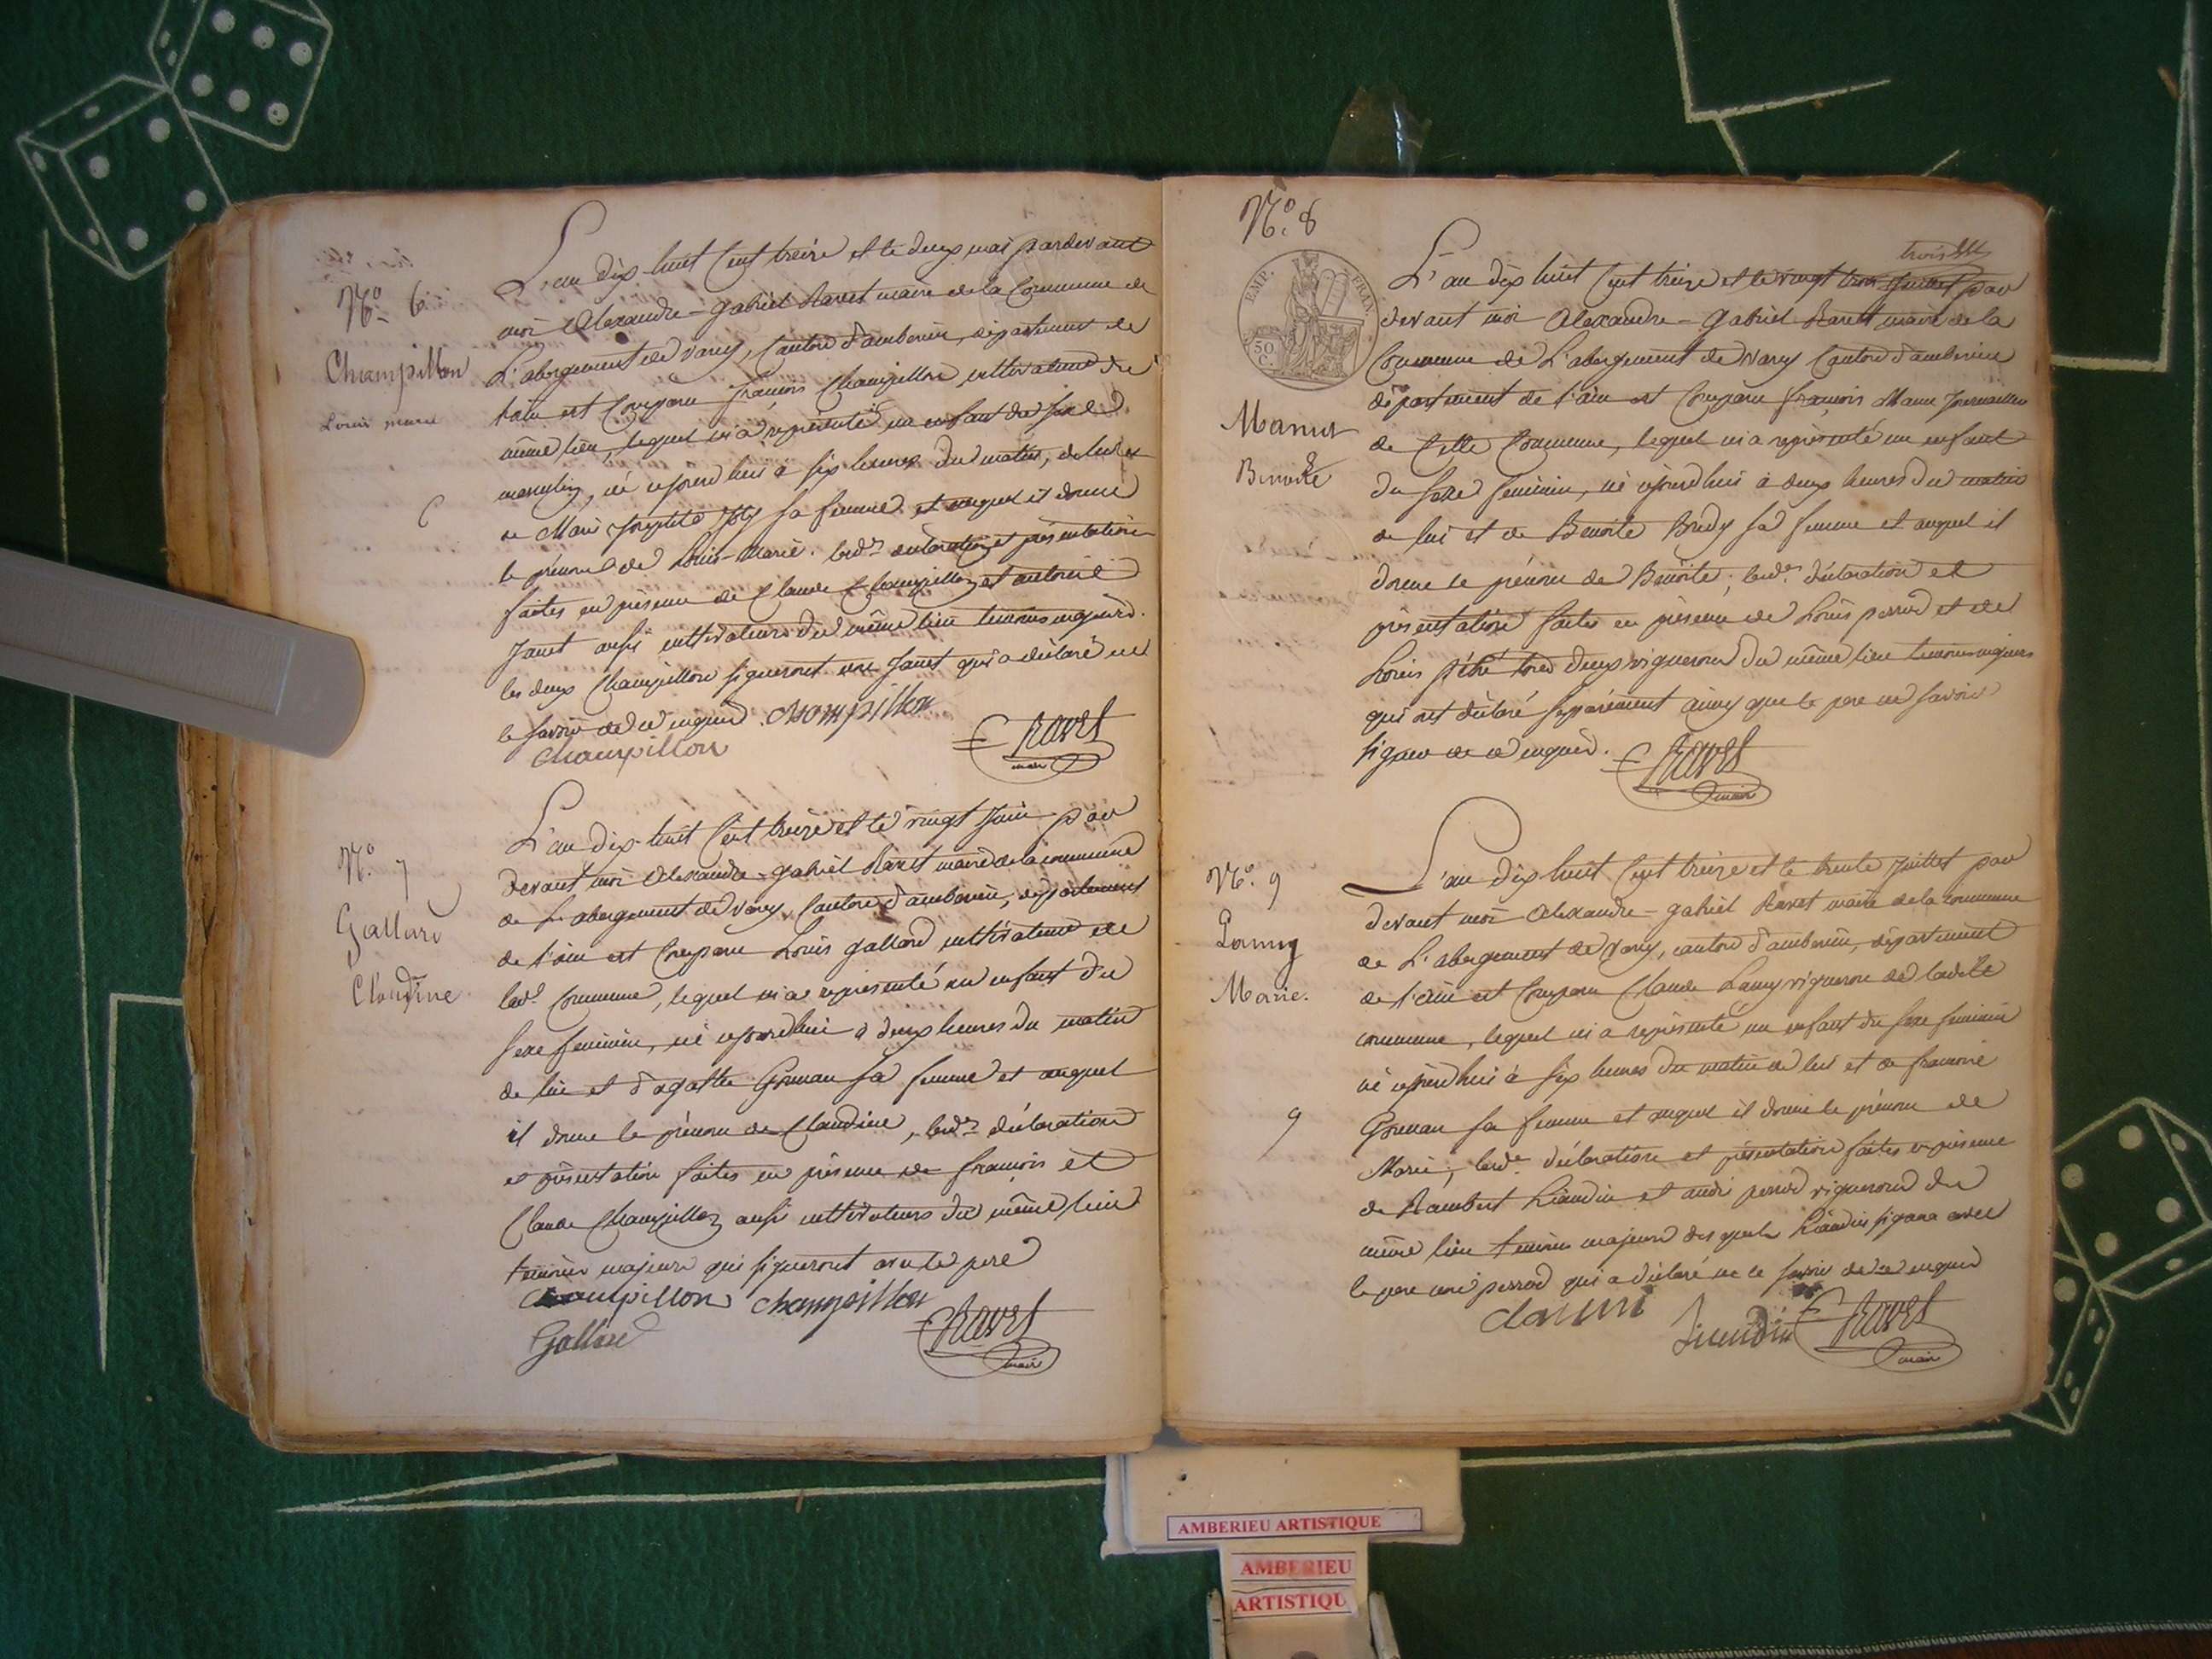 N.º 6
Champillon
Louis marie
6
L'an dix-huit Cent treize et le deux mai pardevant
moi Alexandre-gabriel Ravet maire de la Commune de
L'abergement de varey, Canton d'ambronin, département de
l'ain est Comparu françois Champillon cultivateur du
même lieu, lequel m'a représenté un enfant du sexe
masculin, né cejourd'hui à six heures du matin, de lui et
de Marie Josephte Joly sa femme et auquel il donne
le prénom de Louis-Marie. lesd.es déclaration et présentation
faites en présence de Claude Champillon et antoine
Janet aussi cultivateurs du même lieu témoins majeurs.
les deux Champillon signeront non Janet qui a déclaré ne
le savoir de ce enquis. champillon
Champillon
Ravet
maire
N.º 7
Gallard
Claudine
L'an dix-huit Cent treize et le vingt Juin par
devant moi Alexandre-gabriel Ravet maire de la commune
de L'abergement de varey, Canton d'ambronin, département
de l'ain est Comparu Louis gallard cultivateur de
lad.e Commune, lequel m'a représenté un enfant du
sexe feminin, né cejourd'hui à deux heures du matin
de lui et d'agathe Grumau sa femme et auquel
il donne le prénom de Claudine, lesd.es déclaration
et présentation faites en présence de françois et
Claude Champillon aussi cultivateurs du même lieu
témoins majeurs qui signeront avec le pere
champillon champoillon
Gallard
Ravet
maire
N.º 8
EMP. FRAN.
50 C.
Benoite
8
trois
L'an dix huit Cent treize et le vingt trois Juillet par
devant moi Alexandre-Gabriel Ravet maire de la
Commune de L'abergement de varey Canton d'ambronin
département de l'ain est Comparu françois Journalier
de Cette Commune, lequel m'a représenté un enfant
du sexe feminin, né cejourd'hui à deux heures du matin
de lui et de Benoite sa femme et auquel il
donne le prénom de Benoite; lesd.es déclaration et
présentation faites en présence de Louis perrod et de
Louis tous deux vignerons du même lieu témoins majeurs
qui ont déclaré séparément ainsy que le pere ne savoir
signer de ce enquis.
Ravet
maire
N.º 9
Lamy
Marie.
9
L'an dix huit Cent treize et le trente Juillet par
devant moi Alexandre-gabriel Ravet maire de la commune
de L'abergement de varey, canton d'ambronin, département
de l'ain est Comparu Claude Lamy vigneron de ladite
commune, lequel m'a représenté un enfant du sexe feminin
né cejourd'hui à six heures du matin de lui et de francoise
Grumau sa femme et auquel il donne le prénom de
Marie; lesd.es déclaration et présentation faites en présence
de Rambert Liaudin et andré perrod vignerons du
même lieu témoins majeurs des quels Liaudin signera avec
le pere non perrod qui a déclaré ne le savoir de ce enquis
Liaudin
Ravet
maire
AMBERIEU ARTISTIQUE
AMBERIEU
ARTISTIQU